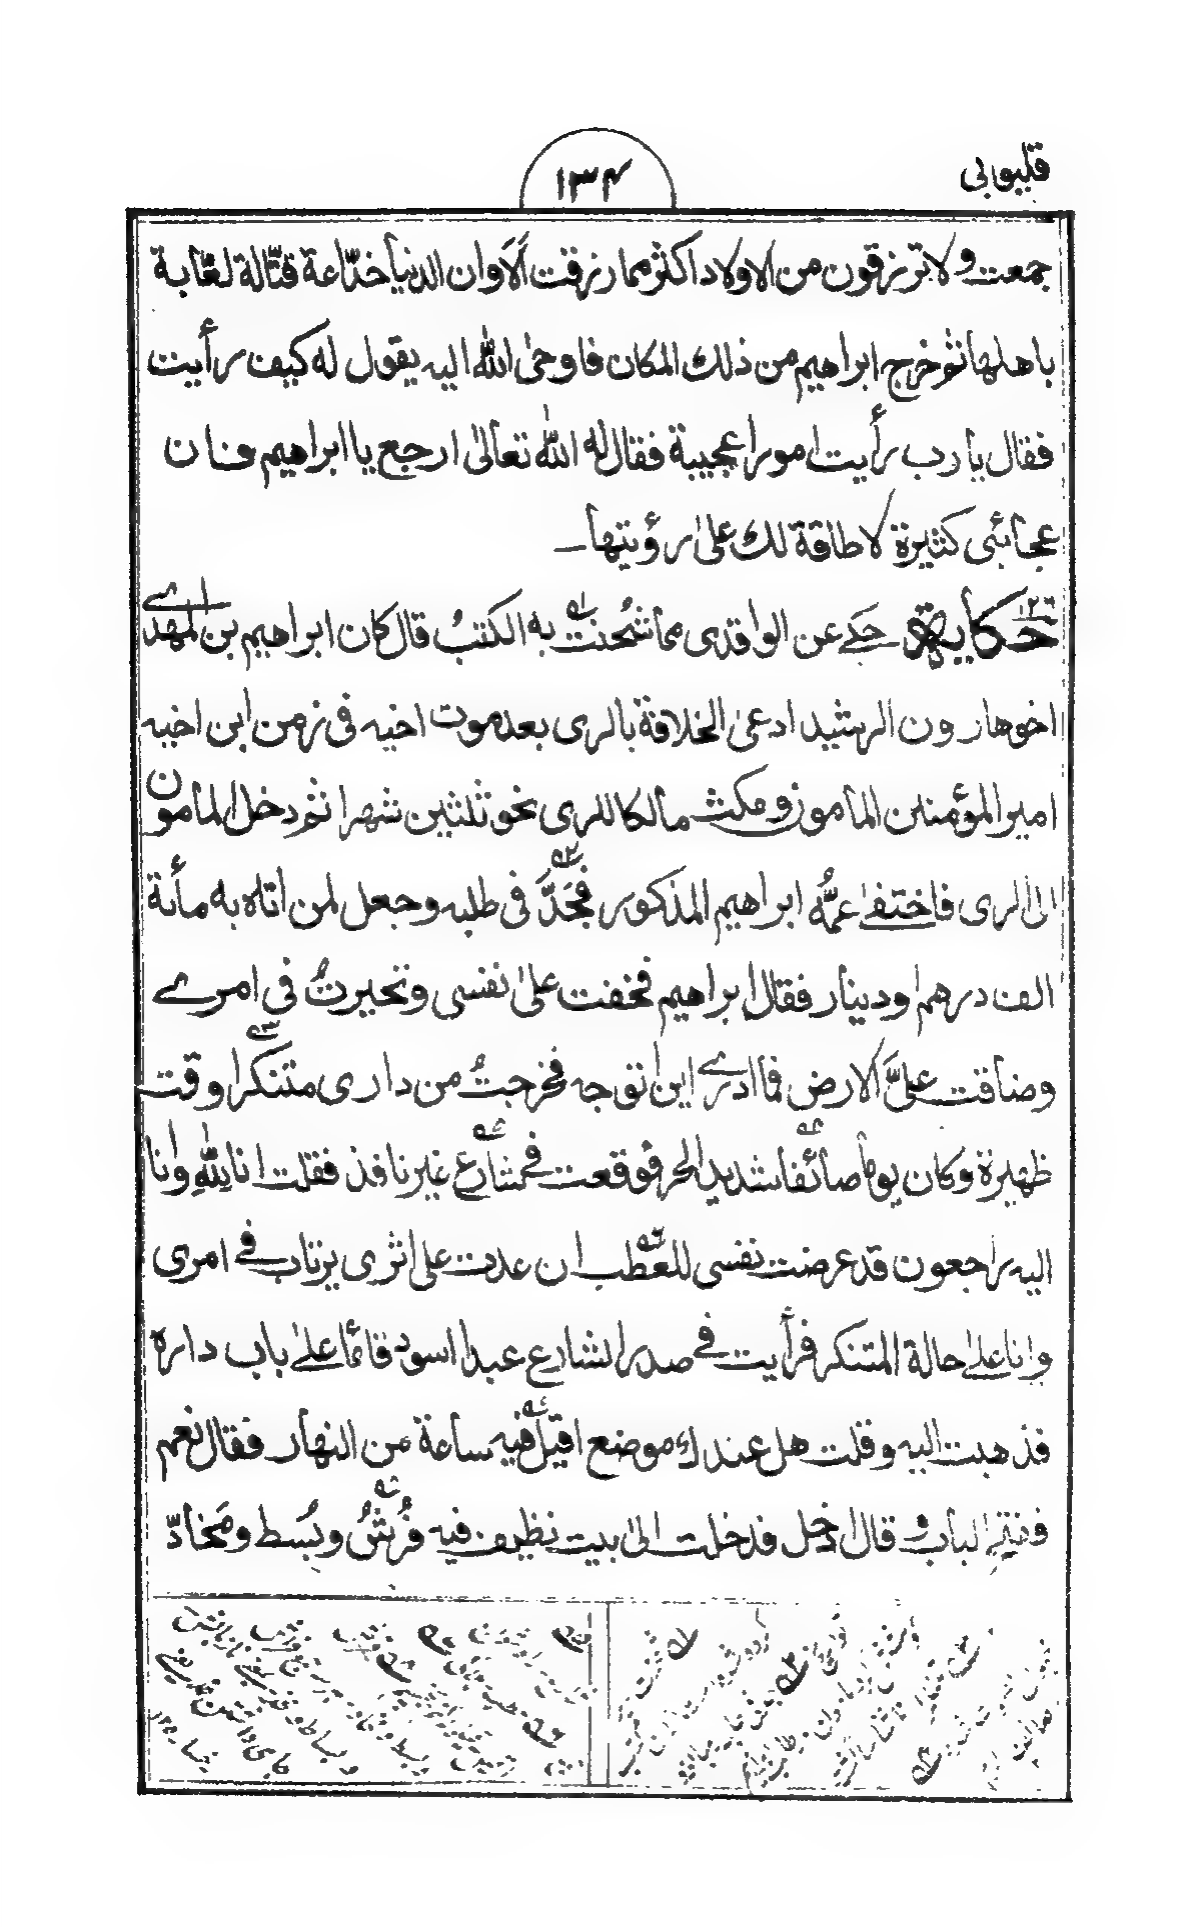 قليوبي
١٣٤
جمعت ولا ترزقون من الاولاد اكثر مما رزقت ألا وان الدنيا خدّاعة قتّالة لعّابة
باهلها ثم خرج ابراهيم من ذلك المكان فاوحى الله اليه يقول له كيف رأيت
فقال يا رب رأيت امورا عجيبة فقال له الله تعالىٰ ارجع يا ابراهيم فان
عجائبى كثيرة لا طاقة لك علىٰ رؤيتها ــ
حكاية حكے عن الواقدى مما شُحنت به الكتبُ قال كان ابراهيم بن المهدے
اخو هارون الرشيد ادعىٰ الخلافة بالرى بعد موت اخيه فى زمن ابن اخيه
امير المؤمنين المامون ومكث مالكا للرى نحو ثلثين شهرا ثم دخل المامون
الىٰ الرى فاختفىٰ عمُّه ابراهيم المذكور فجَدَّ فى طلبه وجعل لمن اتاه به مأئة
الف درهم او دينار فقال ابراهيم فخفت علىٰ نفسى وتحيرتُ فى امرے
وضاقت علىَّ الارض فما ادرے اين اتوجه فخرجتُ من دارى متنكرا وقت
ظهيرة وكان يوما صائفا شديد الحر فوقعت فے شارع غير نافذ فقلت انا لله وانا
اليه راجعون قد عرضت نفسى للعطب ان عدت على اثرى يرتاب فے امرى
وانا علىٰ حالة المتنكر فرأيت فے صدر الشارع عبدا اسود قائما علےٰ باب داره
فذهبت اليه وقلت هل عندك موضع اقيل فيه ساعة من النهار فقال نعم
وفتح الباب وقال ادخل فدخلت الىٰ بيت نظيف فيه فُرُشٌ وبُسط ومَخادّ